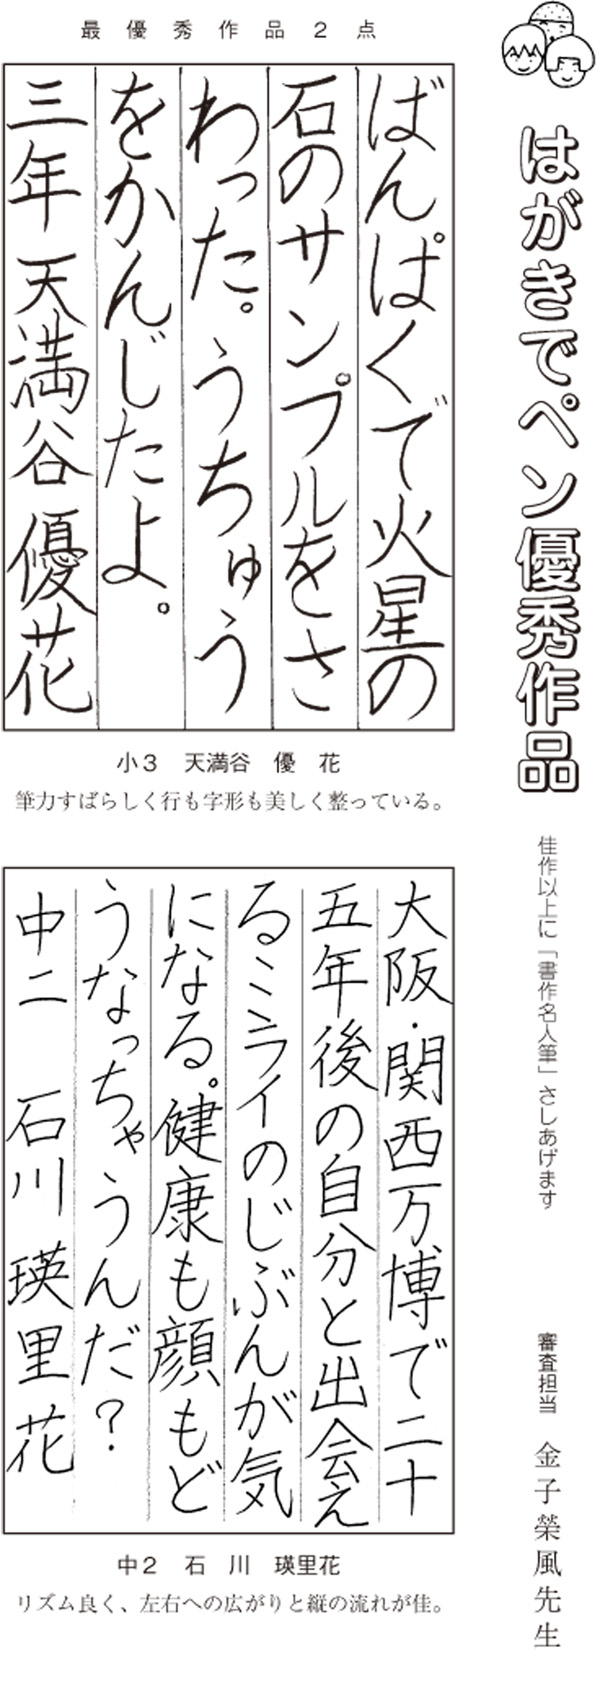 はがきでペン優秀作品
佳作以上に「書作名人筆」さしあげます
審査担当 金子榮風先生
最優秀作品2点
ばんぱくで火星の
石のサンプルをさ
わった。うちゅう
をかんじたよ。
三年 天満谷 優花
小3 天満谷 優花
筆力すばらしく行も字形も美しく整っている。
大阪・関西万博で二十
五年後の自分と出会え
るミライのじぶんが気
になる。健康も顔もど
うなっちゃうんだ?
中二 石川 瑛里花
中2 石川 瑛里花
リズム良く、左右への広がりと縦の流れが佳。